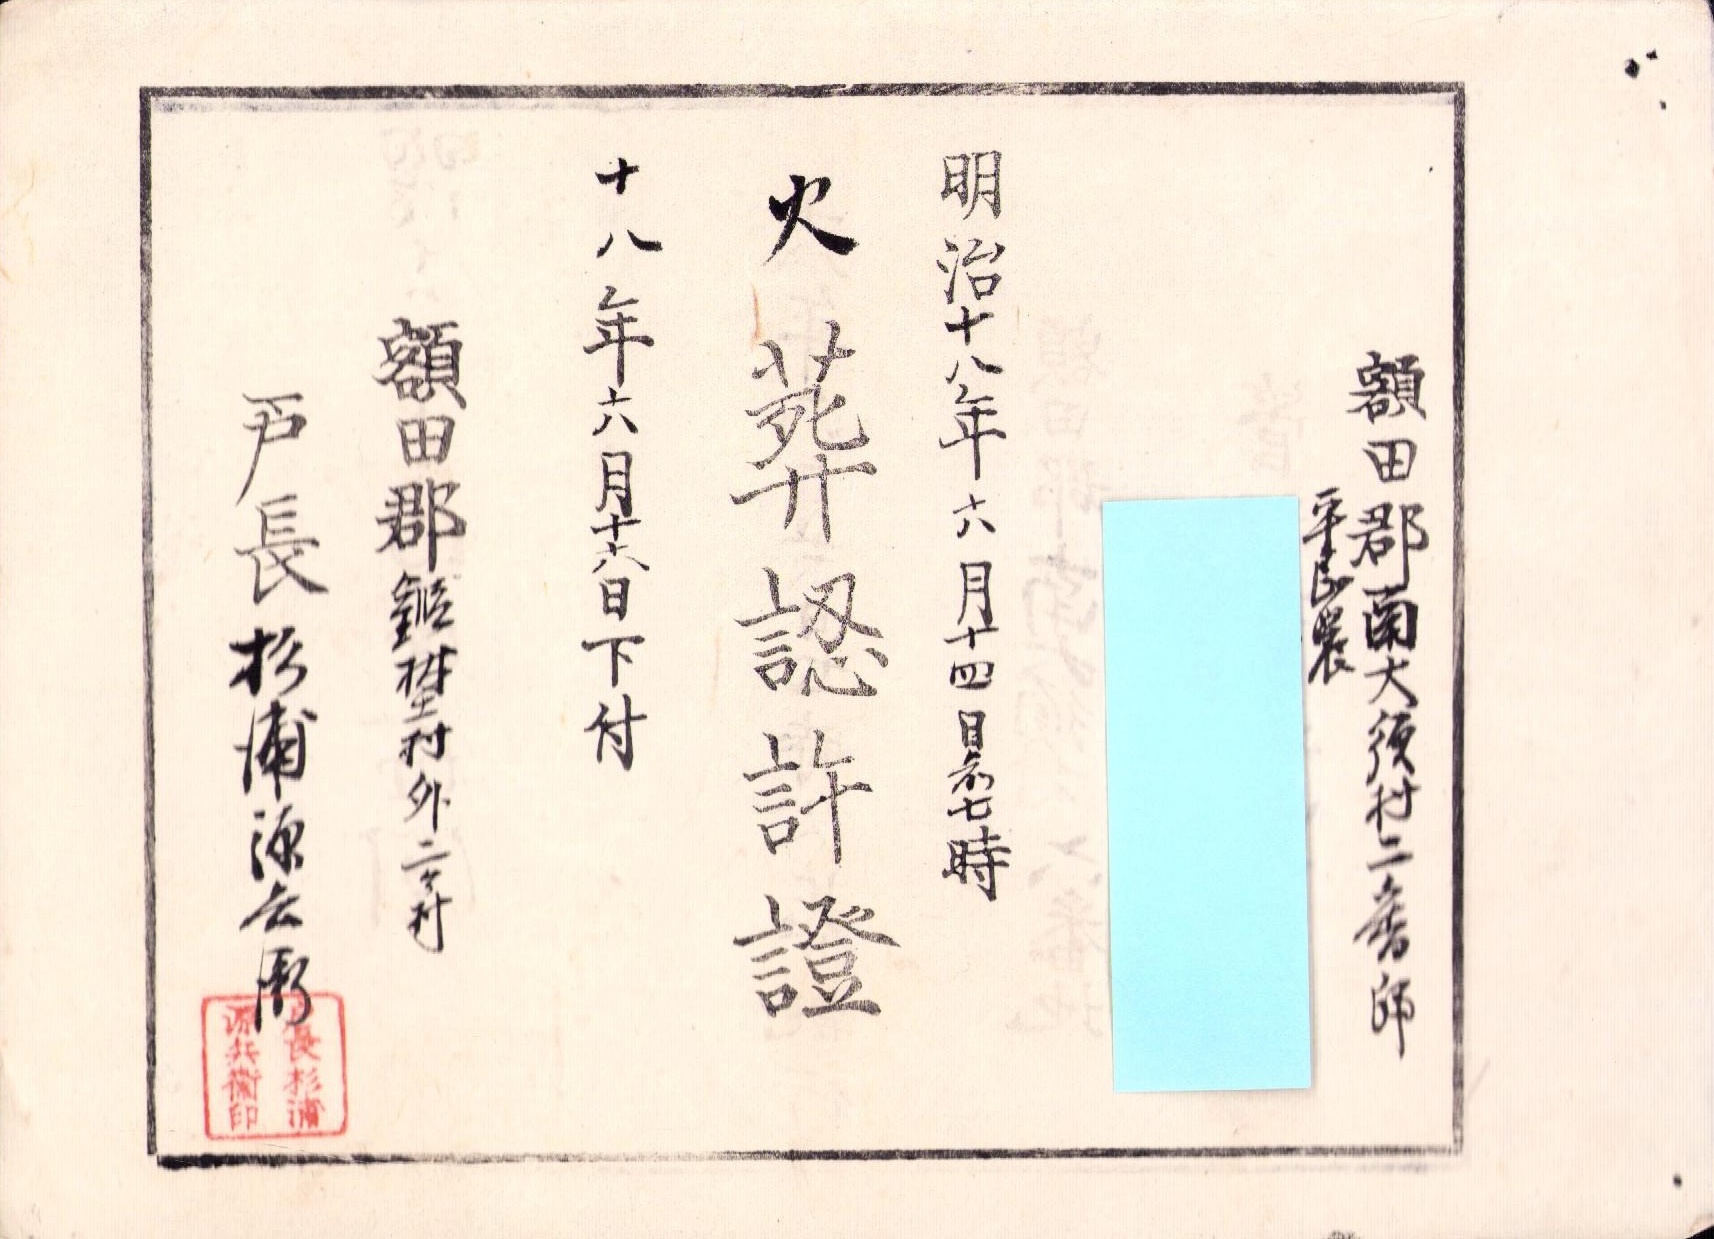 額田郡南大須村二番邸
平民農
明治十八年六月十四日前七時
火葬認許證
十八年六月十六日下付
額田郡鍛埜村外二ケ村
戸長杉浦源兵衛
戸長杉浦
源兵衛印